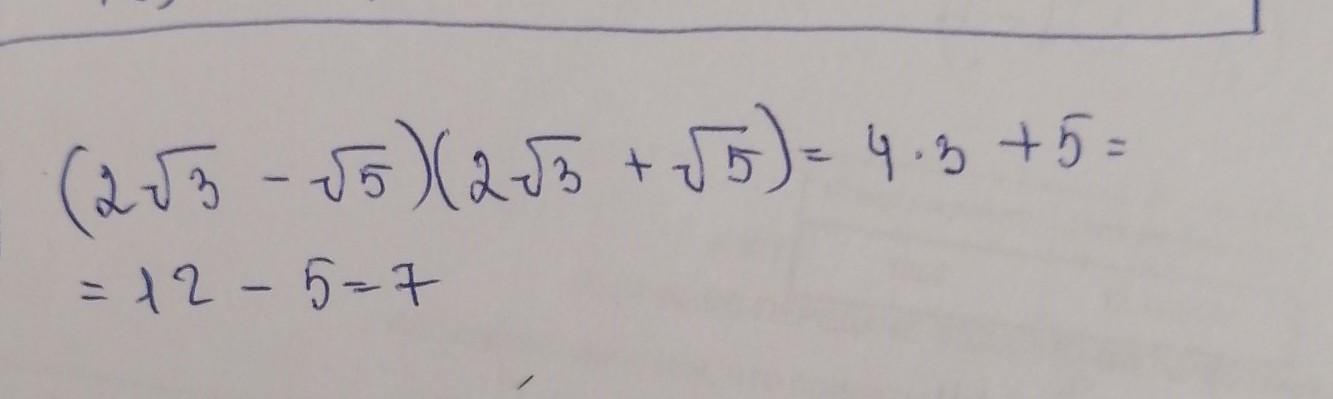 (2√3 - √5)(2√3 + √5) = 4·3 + 5 =
= 12 - 5 = 7